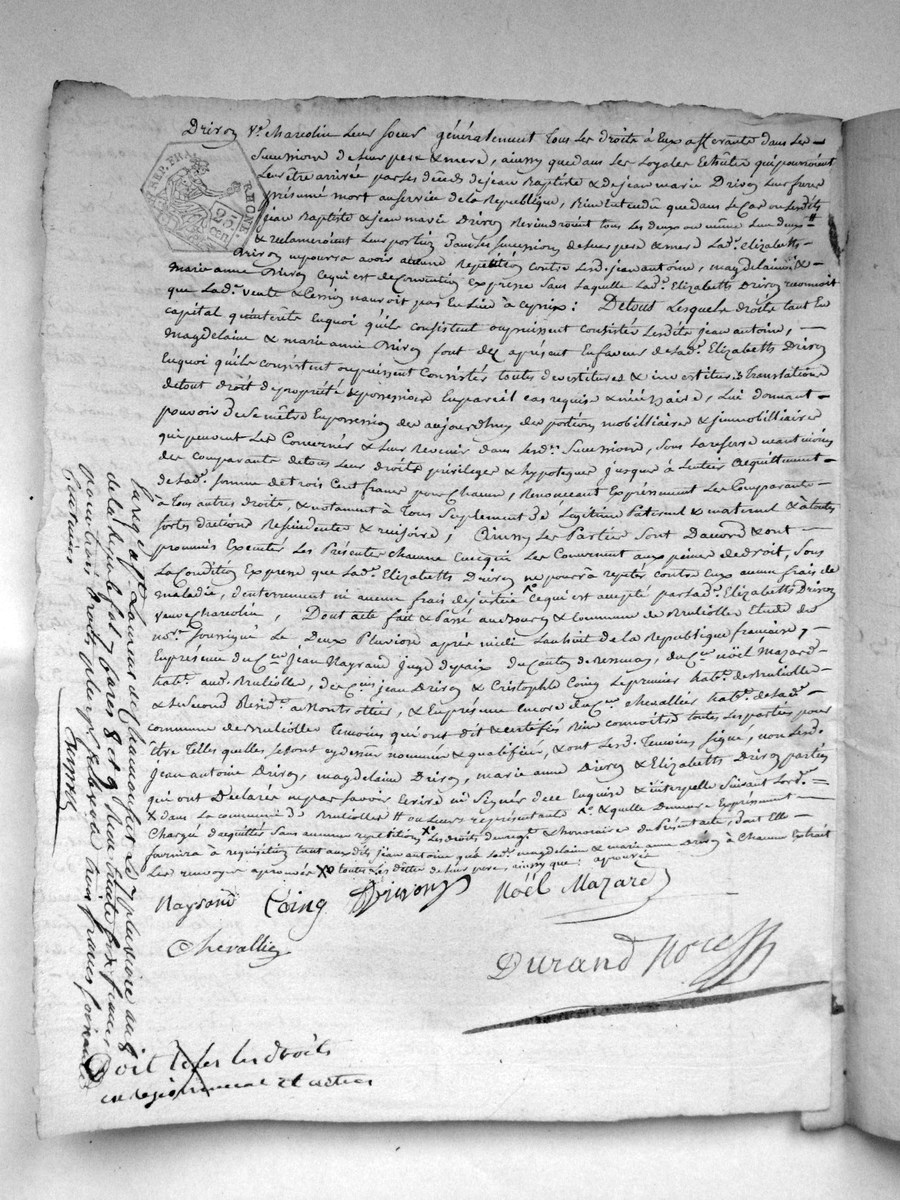 Drivon Ve. charcolin leur soeur généralement tous les droits à Eux afferants dans les
REP. FRA. RHONE 25 CEN
Successions de leurs pere & mere, ainsy que dans les loyales Echûtes qui pourroient
leur être arrivés par les décès de jean Baptiste & de jean marie Drivon leurs freres
présumé mort au service de la République, bien Entendu que dans le Cas ou lesdits
jean Baptiste & jean marie Drivon Reviendroient tous les deux ou même l'un deux
& reclameroient leur portion dans les succession de leurs pere & mere Lade. Elizabetts
Drivon ne pourra avoir aucune Repetition contre lesd. jean antoine, magdelaine &
marie anne Drivon Ce qui est de Convention Expresse sans laquelle Lade. Elizabetts Drivon reconnoit
que lade. vente & Cession n'auroit pas Eu lieu à ce prix: De tous Lesquels droits tant En
capital qu'interets En quoi qu'ils Consistent ou puissent Consistés Lesdits jean antoine,
magdelaine & marie anne Drivon font dez àprésent En faveur de Lade. Elizabetts Drivon
En quoi qu'ils Consistent ou puissent Consistés toutes devestitures & investitures Translations
de tout droit de propriété & possessions En pareil cas requises & nécéssaires, Lui donnant
pouvoir de se mêtre En possession dez aujourdhuy des portions mobilliaires & jmmobilliaires
qui peuvent Les Concernés & leur Revenir dans lesd. Succession, sous la reserve neantmoins
des comparants de tous leurs droits privilege & hypoteque jusque à l'entier acquittement
de lade. somme de trois Cent francs pour Chacun, Renonceant Expressement Les Comparants
à Tous autres droits, & notament à Tous suplement de Legitime Paternel & maternel & à toutes
sortes d'actions Rescindentes & rescisoires, Ainsy Les Parties sont D'accord & ont
promis Executés Les Présentes chacune En ce qui Les Concernent aux peines de droit, sous
la Condition Expresse que lade. Elizabetts Drivon ne pourrà repeter contre Eux aucun frais de
maladie, d'enterrement ni aucun frais de justice Ce qui est accepté par lade. Elizabetts Drivon
veuve Charcolin, Dont acte fait & Passé au Bourg & Commune de Brulliolles Etude du
nore. Soussigné Le Deux Pluviose après midi Lan huit de la Republique françaises,
En présence du Cen. jean Naysrand juge de paix du Canton de Bessenay, du Cen. Nöël Mazard
habt. aud. Brulliolle, des Cens jean Drivon & Cristophle Coing Le premier habt. de Brulliolle
& le second Resid. à Montrottier, & En présence Encore du Cen. Chevallier habt. de lade.
commune de Brulliolle Temoins qui ont dit & certifiés bien connoitre toutes Les parties pour
Etre Telles quelles se sont cy dessus nommées & qualifiées, & ont Lesd. Temoins, signé, non Lesd.
jean antoine Drivon, magdelaine Drivon, marie anne Drivon & Elizabetts Drivon parties
qui ont Déclarés ne pas savoir Ecrire ni Signer de ce Enquises & interpellé suivant Lord.
x dans la commune de Brulliolles # ou leurs représentants xo & quelle Demeure Expressement
Chargé d'acquitter sans aucune repetition x Les droits d'enregt. & honoraires du Présent acte, dont Elle
fournira à requisition tant aux dits jean antoine qu'à lade. magdelain & marie anne Drivon à Chacun Extrait
Les renvoys aprouvés x toutes les dettes de leurs pere, ainsy que: aprouvée
Naysrand Coing Drivon Nöël Mazard
Chevallier
Durand Nore
Doit tous les droits
enregistrement et autres